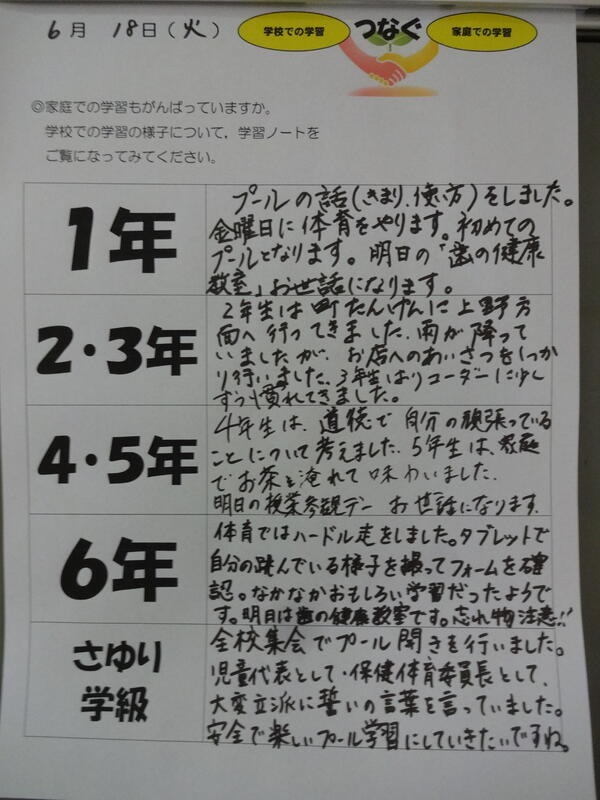 6月 18日(火)
学校での学習 つなぐ 家庭での学習
◎家庭での学習もがんばっていますか。
学校での学習の様子について,学習ノートを
ご覧になってみてください。
1年
プールの話(きまり、使い方)をしました。
金曜日に体育をやります。初めての
プールとなります。明日の「歯の健康
教室」お世話になります。
2・3年
2年生は町たんけんに上野方
面へ行ってきました。雨が降って
いましたが、お店へのあいさつをしっか
り行いました。3年生はリコーダーに少し
ずつ慣れてきました。
4・5年
4年生は、道徳で自分の頑張っている
ことについて考えました。5年生は、家庭
でお茶を淹れて味わいました。
明日の授業参観デー お世話になります。
6年
体育ではハードル走をしました。タブレットで
自分の跳んでいる様子を撮ってフォームを確
認。なかなかおもしろい学習だったようで
す。明日は歯の健康教室です。忘れ物注意!!
さゆり
学級
全校集会でプール開きを行いました。
児童代表として、保健体育委員長として、
大変立派に誓いの言葉を言っていました。
安全で楽しいプール学習にしていきたいですね。